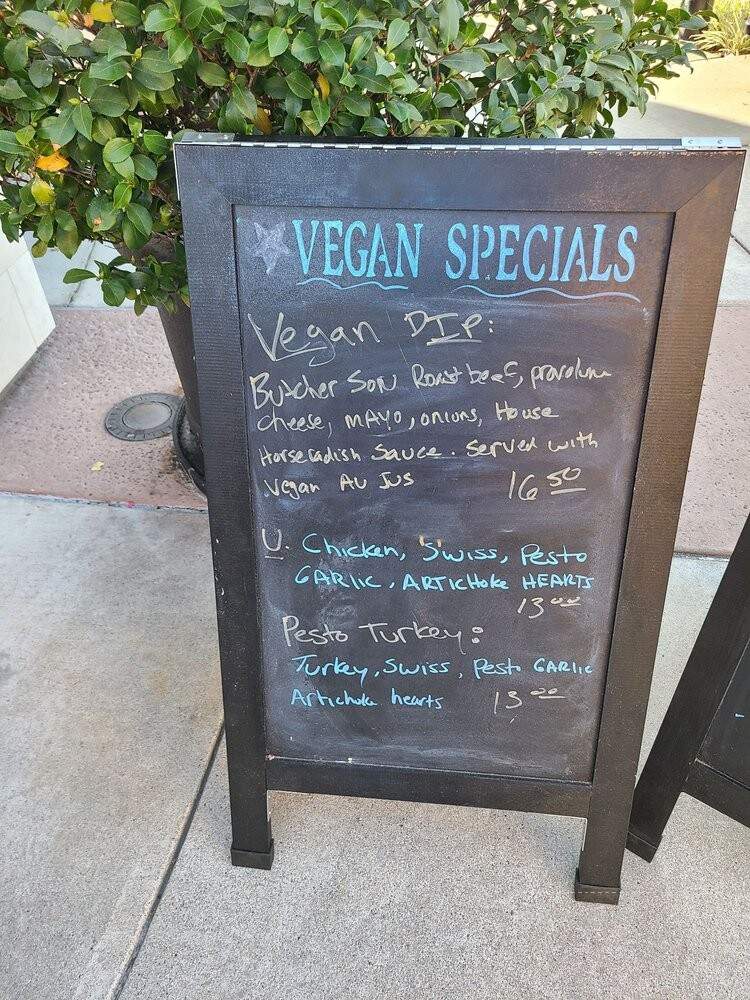 VEGAN SPECIALS
Vegan DIP:
Butcher Son Roast beef, provolone
cheese, MAYO, onions, House
Horseradish Sauce. Served with
Vegan Au Jus 16 50
U. Chicken, Swiss, Pesto
GARlic, ARTichoke HEARTS
13 00
Pesto Turkey:
Turkey, Swiss, Pesto GARlic
Artichoke hearts 13 00